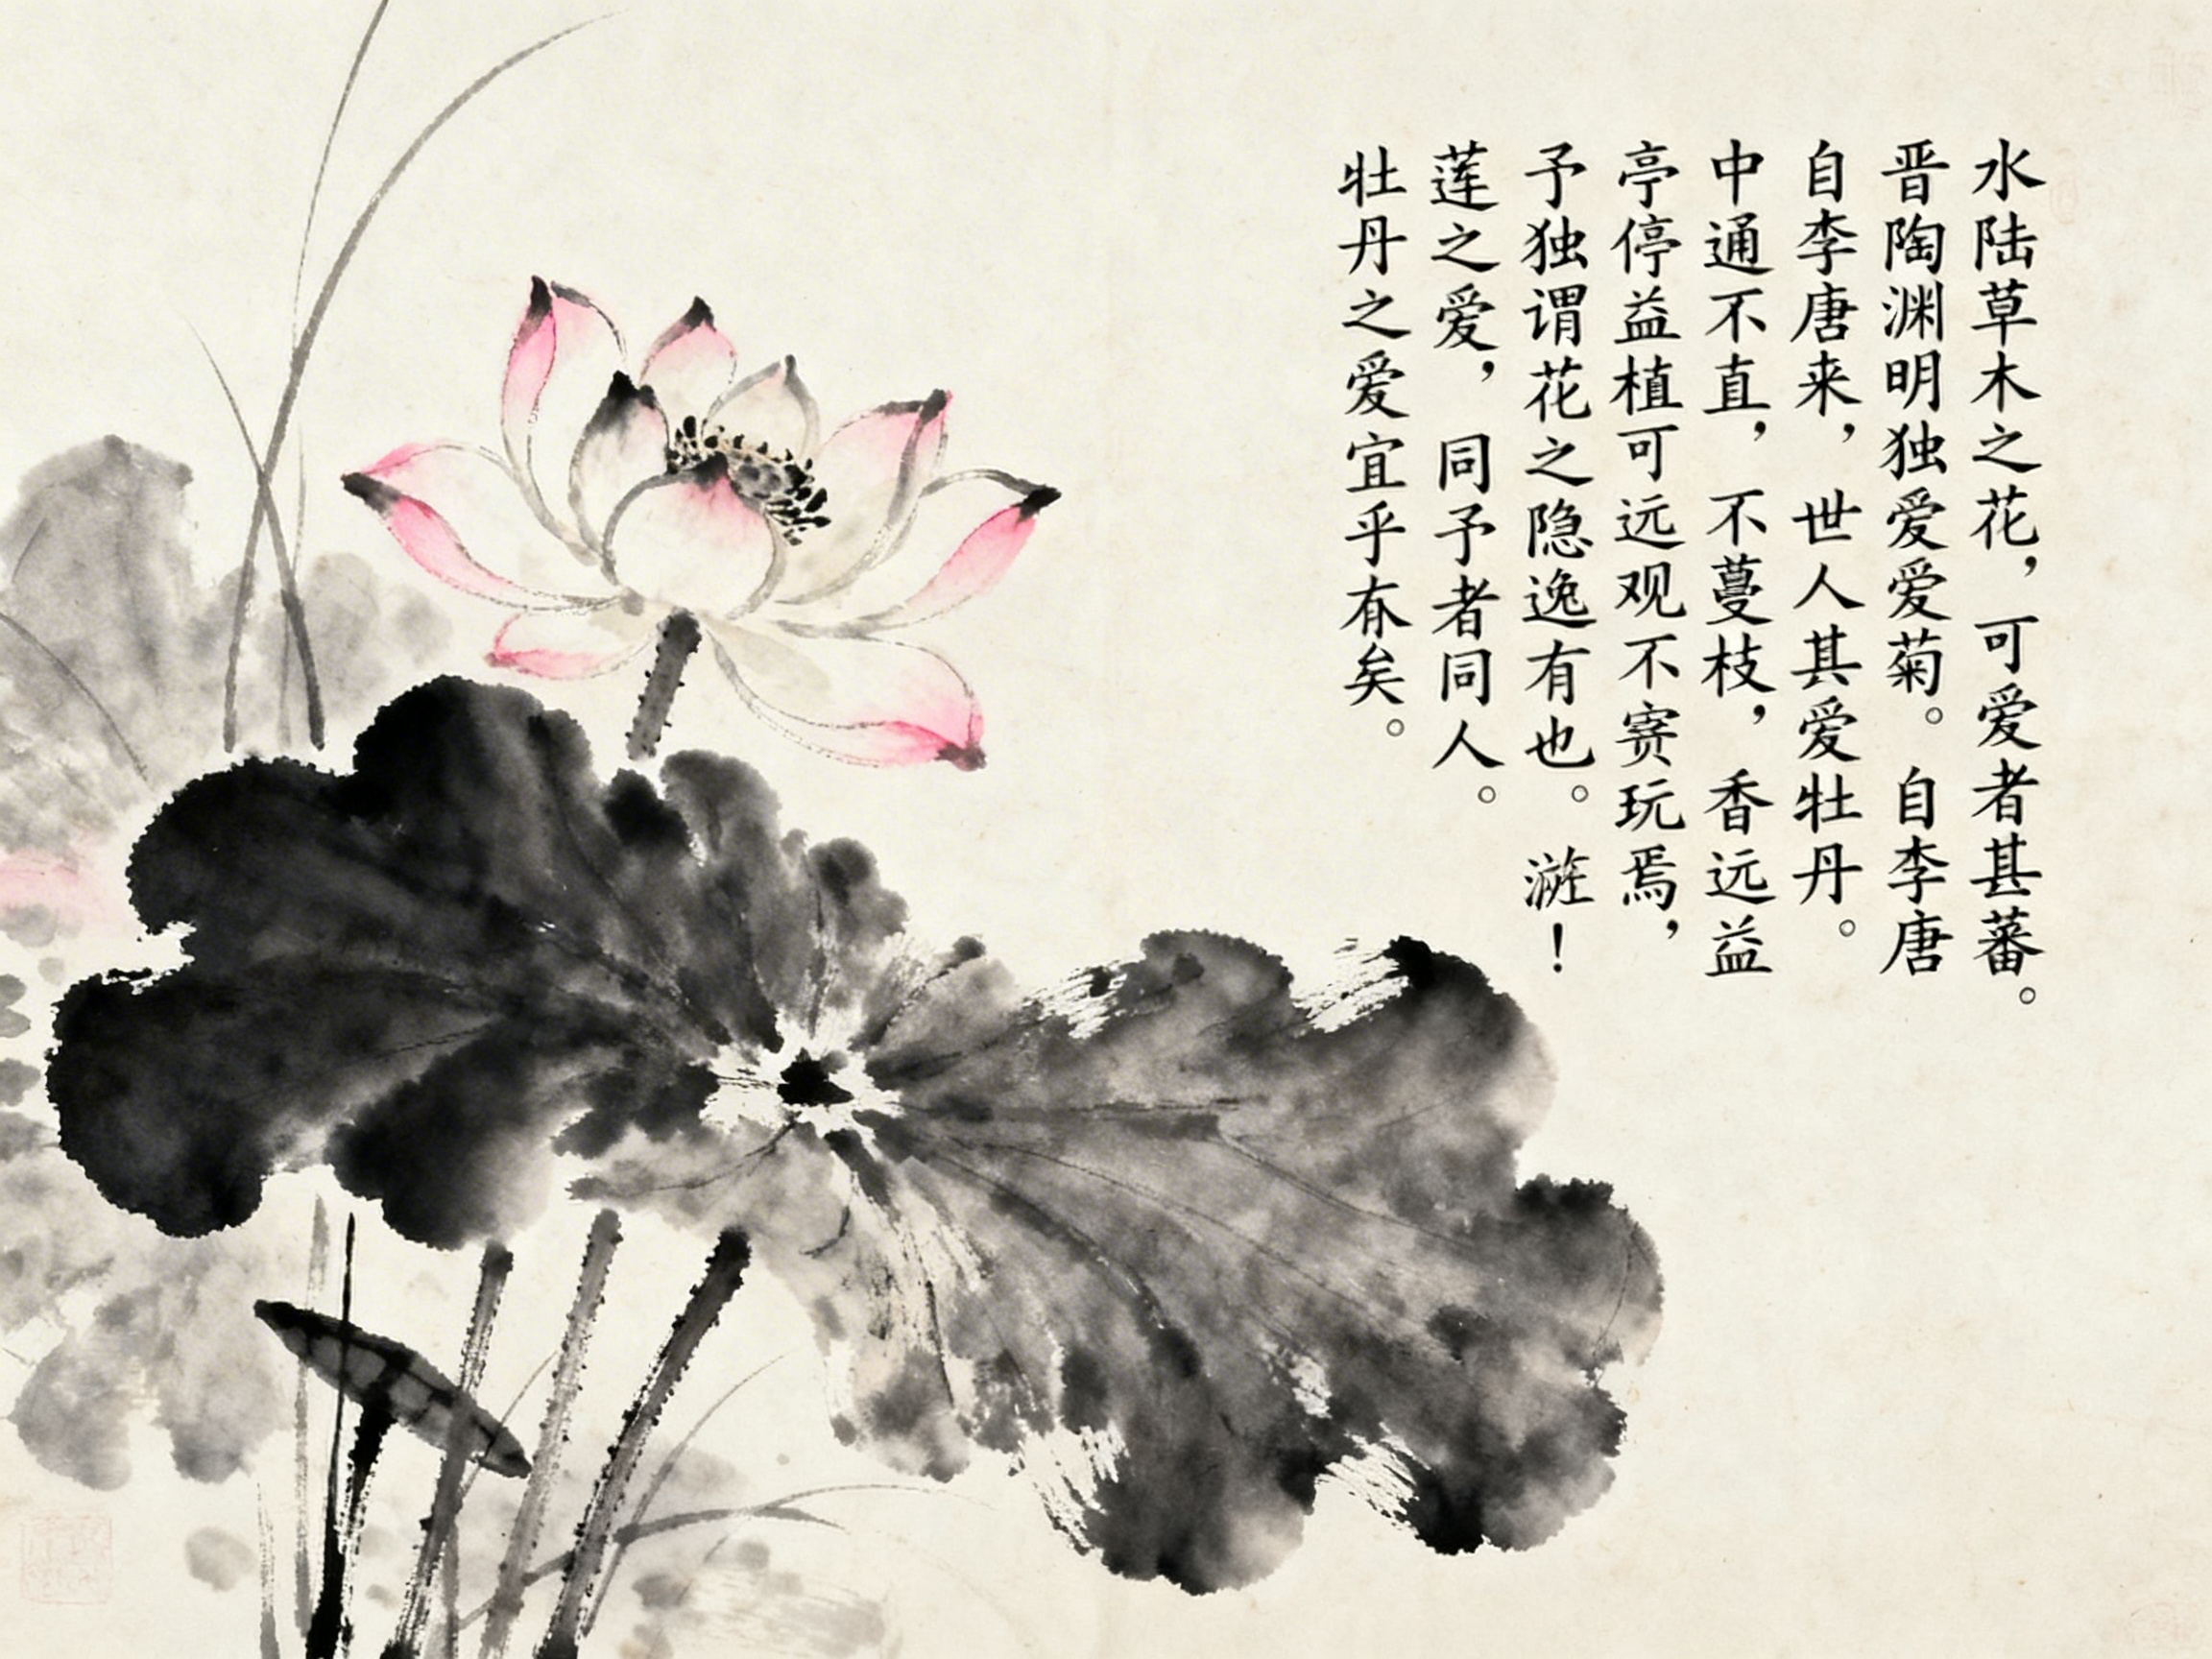 水陆草木之花，可爱者甚蕃。
晋陶渊明独爱爱菊。自李唐
自李唐来，世人其爱牡丹。
中通不直，不蔓枝，香远益
亭停益植可远观不赛玩焉，
予独谓花之隐逸有也。！
莲之爱，同予者同人。
牡丹之爱宜乎矣。